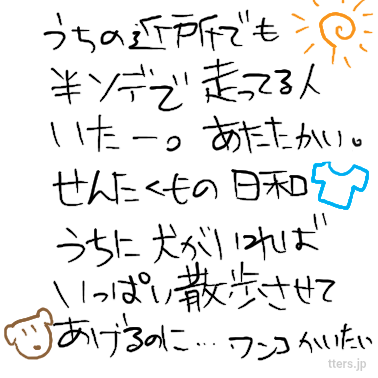 うちの近所でも
半ソデで走ってる人
いたー。あたたかい。
せんたくもの日和
うちに犬がいれば
いっぱい散歩させて
あげるのに…ワンコかいたい
tters.jp